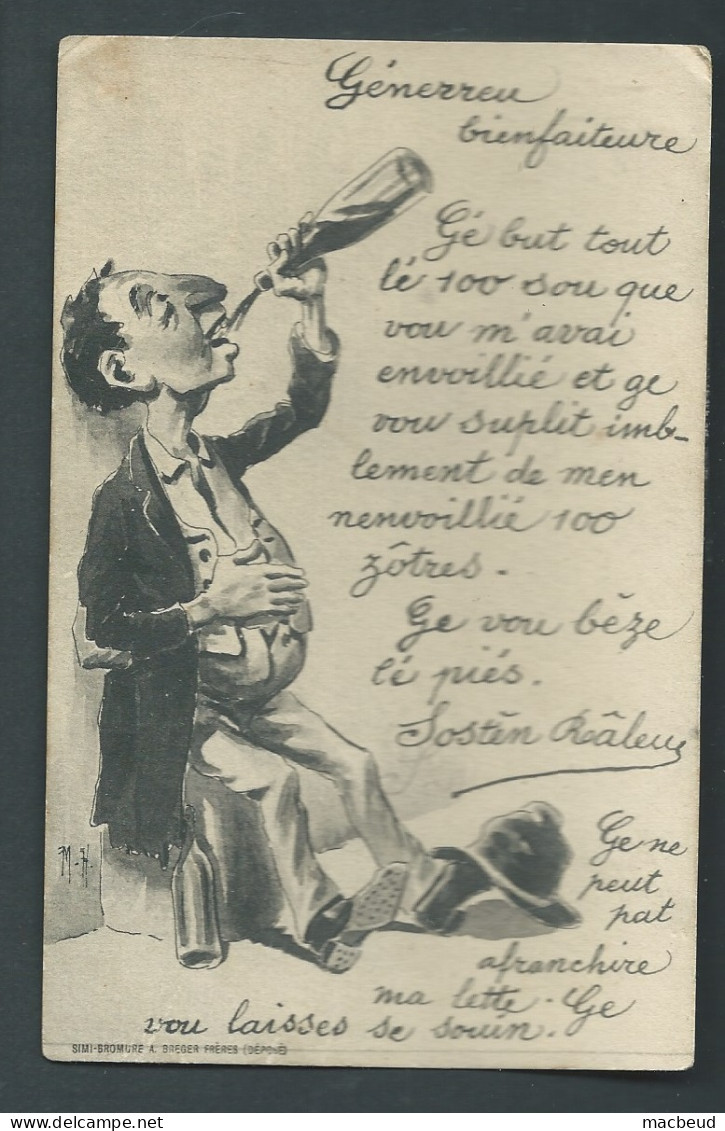 Génerreu
bienfaiteure
Gé but tout
lé 100 sou que
vou m'avai
envoillié et ge
vou suplit imb-
lement de men
nenvoillié 100
zôtres.
Ge vou bêze
lé piés.
Sostèn Râleu
Ge ne
peut
pat
afranchire
ma lette. Ge
vou laisses se souin.
M.H.
SIMI-BROMURE A. BREGER FRÈRES (DÉPOSÉ)
macbeud